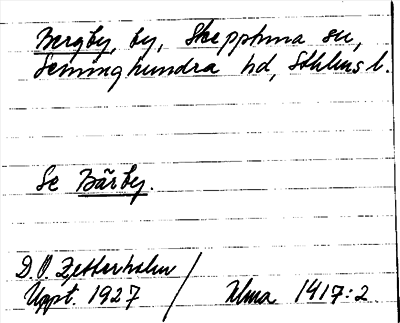 Bergby, by, Skepptuna sn,
Seminghundra hd, Sthlms l.
Se Bärby.
D. O. Zetterholm /
Uppt. 1927 / Ulma 1417:2.